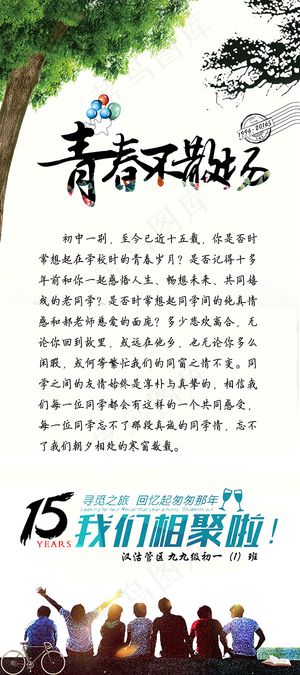 青春不散场
初中一别，至今已近十五载，你是否时
常想起在学校时的青春岁月？是否记得十多
年前和你一起感悟人生、畅想未来、共同嬉
戏的老同学？是否时常想起同学间的纯真情
感和郝老师慈爱的面庞？多少悲欢离合，无
论你回到故里，或远在他乡，也无论你多么
闲暇，或何等繁忙我们的同窗之情不变。同
学之间的友情始终是淳朴与真挚的，相信我
们每一位同学都会有这样的一个共同感受，
每一位同学忘不了那段真诚的同学情，忘不
了我们朝夕相处的寒窗数载。
15
YEARS
寻觅之旅 回忆起匆匆那年
我们相聚啦！
汉沽管区九九级初一（1）班